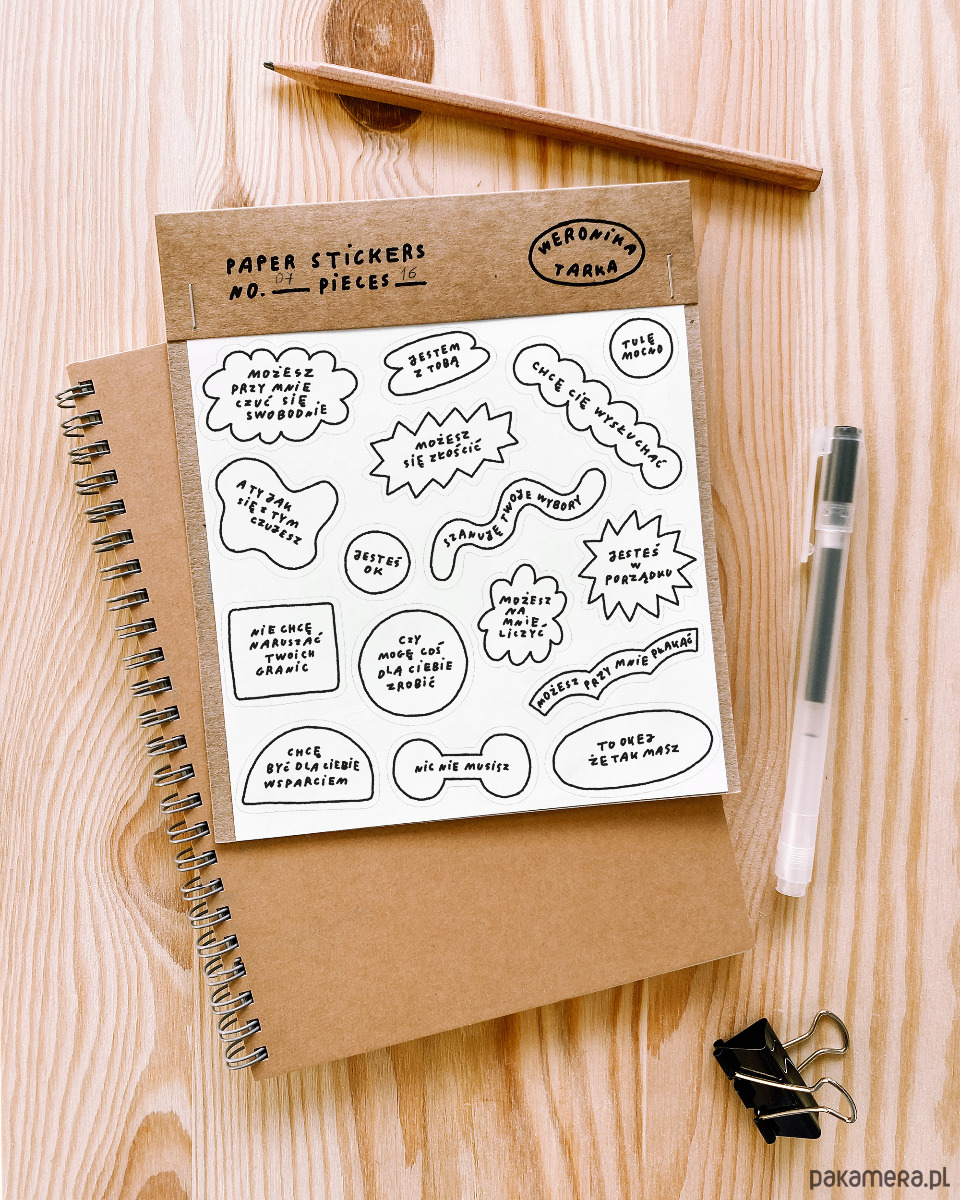 PAPER STICKERS
NO. 07 PIECES 16
WERONIKA
TARKA
MOŻESZ
PRZY MNIE
CZUĆ SIĘ
SWOBODNIE
JESTEM
Z TOBĄ
CHCĘ CIĘ WYSŁUCHAĆ
TULĘ
MOCNO
MOŻESZ
SIĘ ZŁOŚCIĆ
A TY JAK
SIĘ Z TYM
CZUJESZ
JESTEŚ
OK
SZANUJĘ TWOJE WYBORY
JESTEŚ
W
PORZĄDKU
NIE CHCĘ
NARUSZAĆ
TWOICH
GRANIC
CZY
MOGĘ COŚ
DLA CIEBIE
ZROBIĆ
MOŻESZ
NA
MNIE
LICZYĆ
MOŻESZ PRZY MNIE PŁAKAĆ
CHCĘ
BYĆ DLA CIEBIE
WSPARCIEM
NIC NIE MUSISZ
TO OKEJ
ŻE TAK MASZ
pakamera.pl